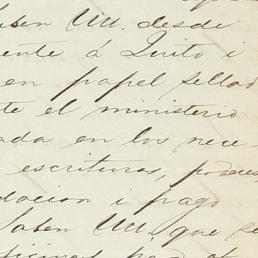 Saben UU. desde
ente á Quito i
en papel sellad
te el ministerio
ada en los nece
escrituras, poderes,
dacion i pago
Saben UU. que se